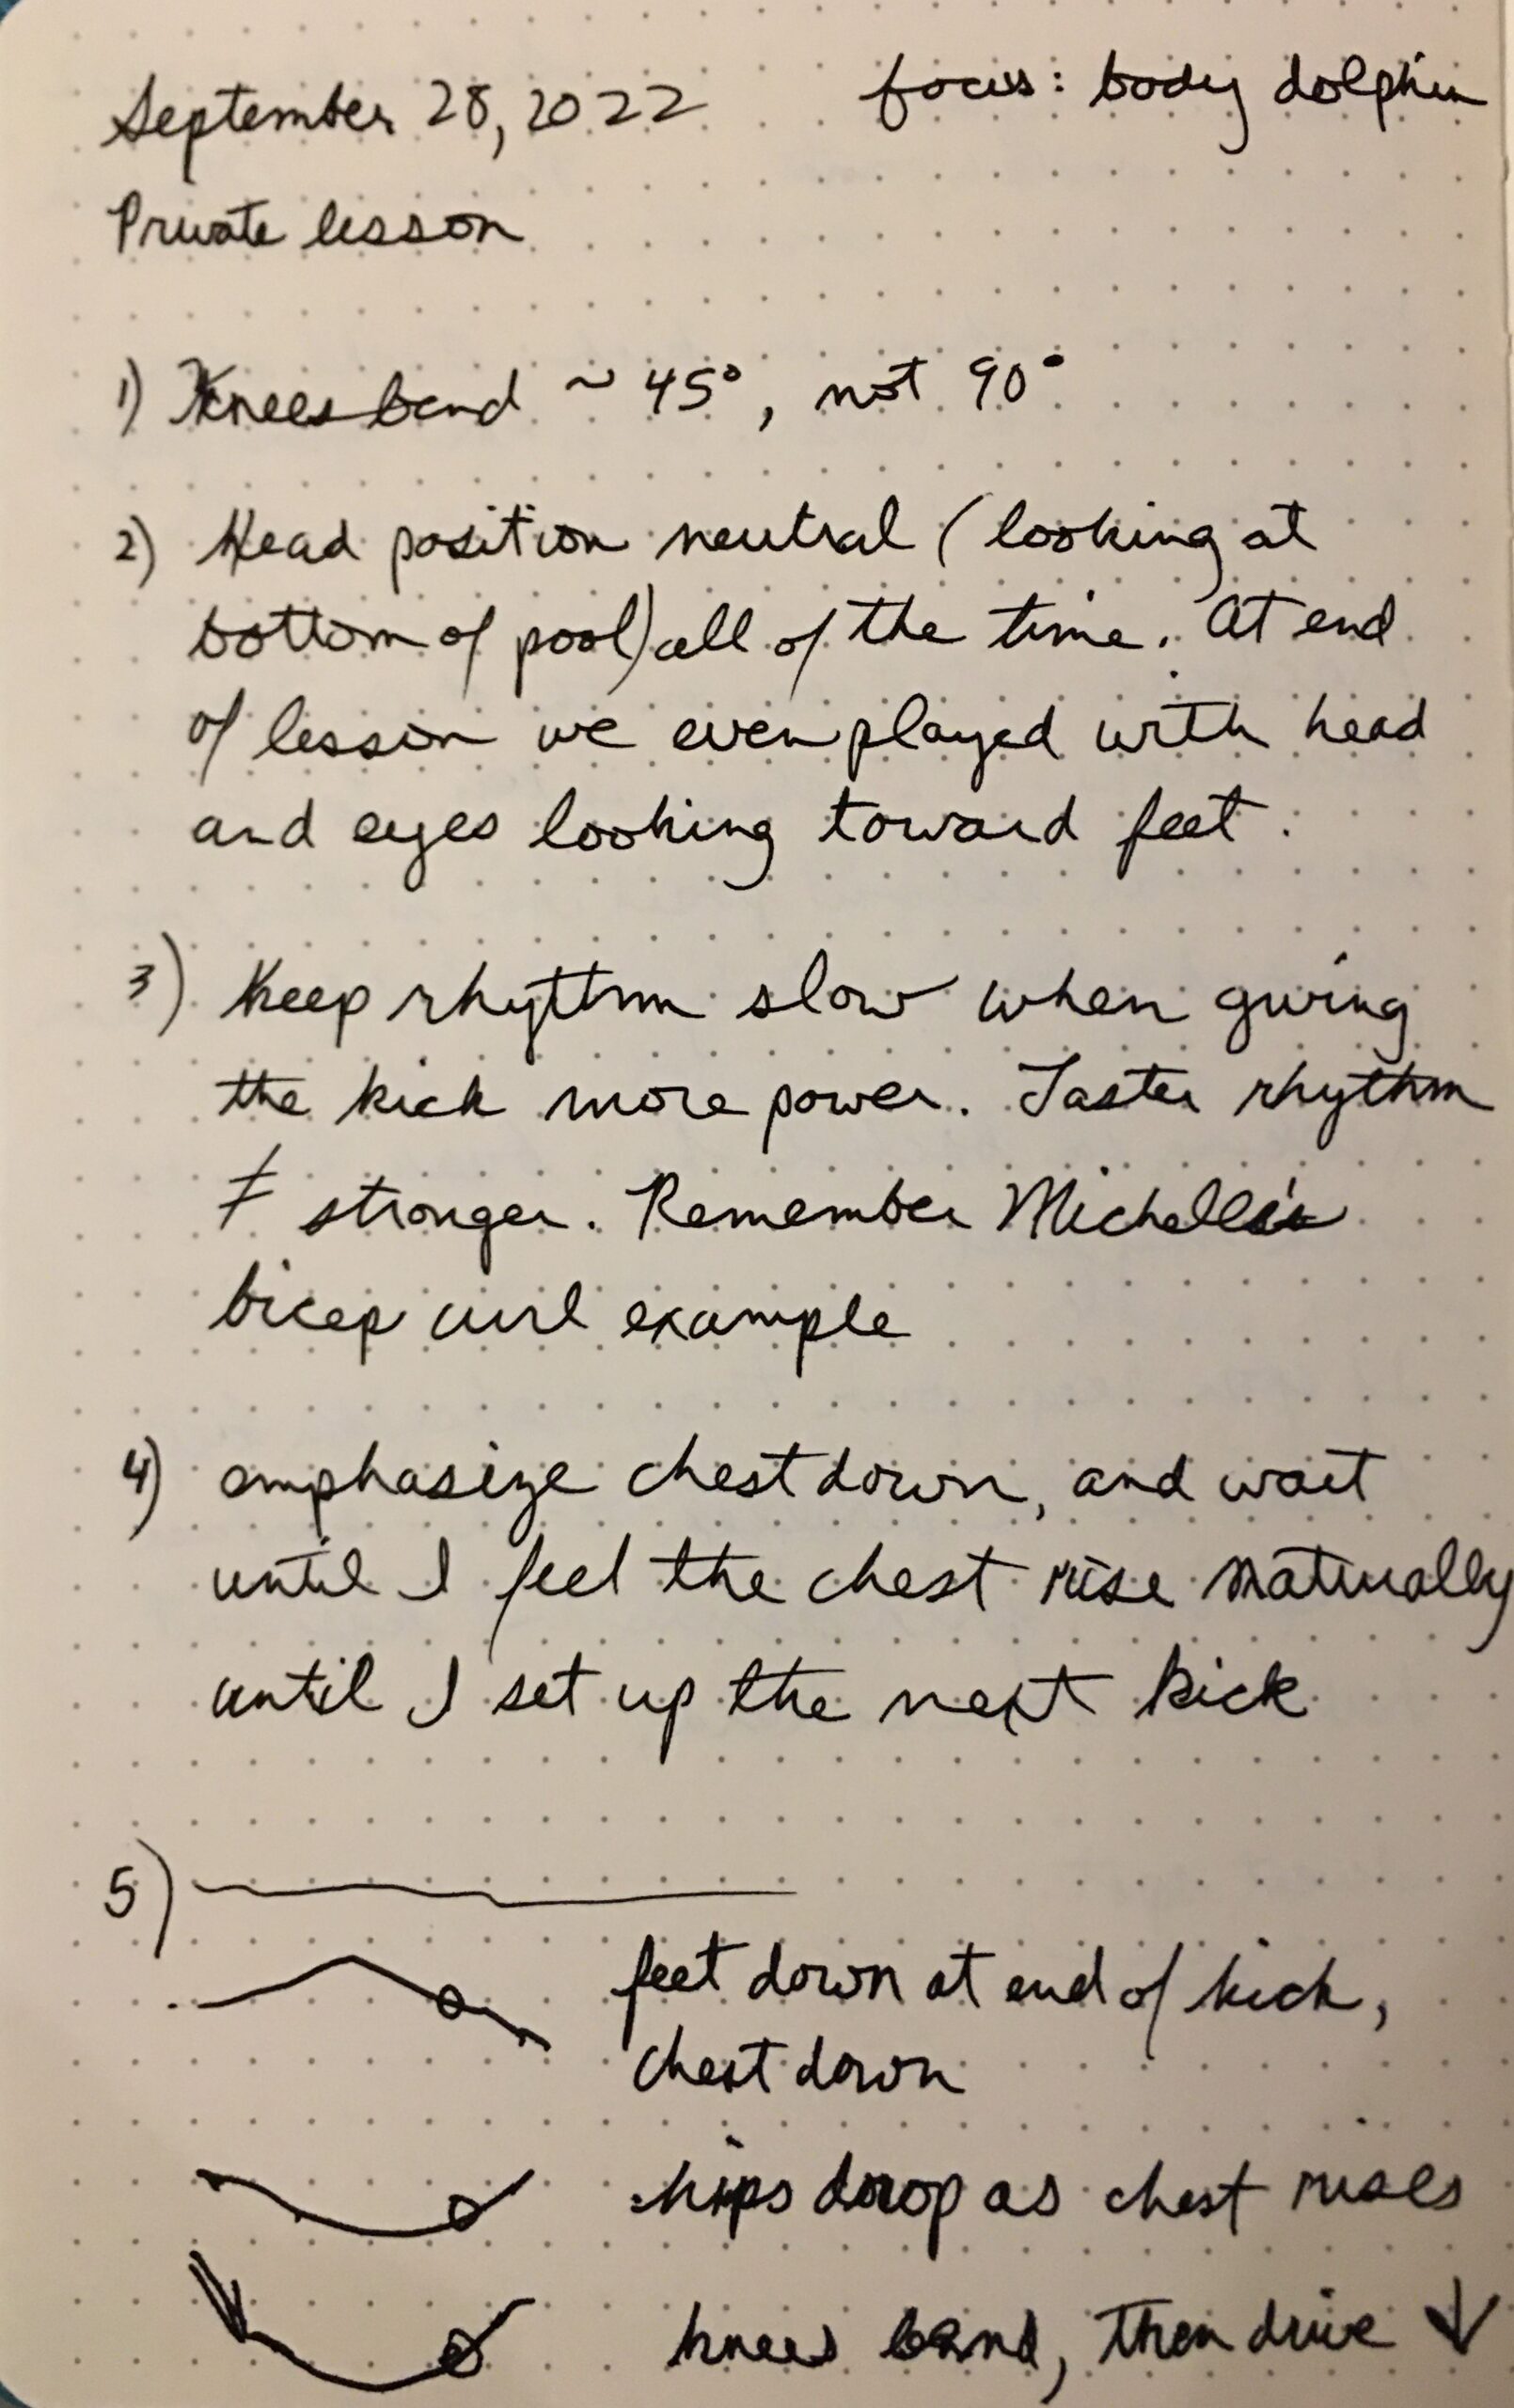 September 28, 2022 focus: body dolphin
Private lesson
1) Knees bend ~ 45°, not 90°
2) Head position neutral (looking at
bottom of pool) all of the time. At end
of lesson we even played with head
and eyes looking toward feet.
3) Keep rhythm slow when giving
the kick more power. Faster rhythm
≠ stronger. Remember Michelle's
bicep curl example
4) emphasize chest down, and wait
until I feel the chest rise naturally
until I set up the next kick
5)
feet down at end of kick,
chest down
hips drop as chest rises
knees bend, then drive ↓